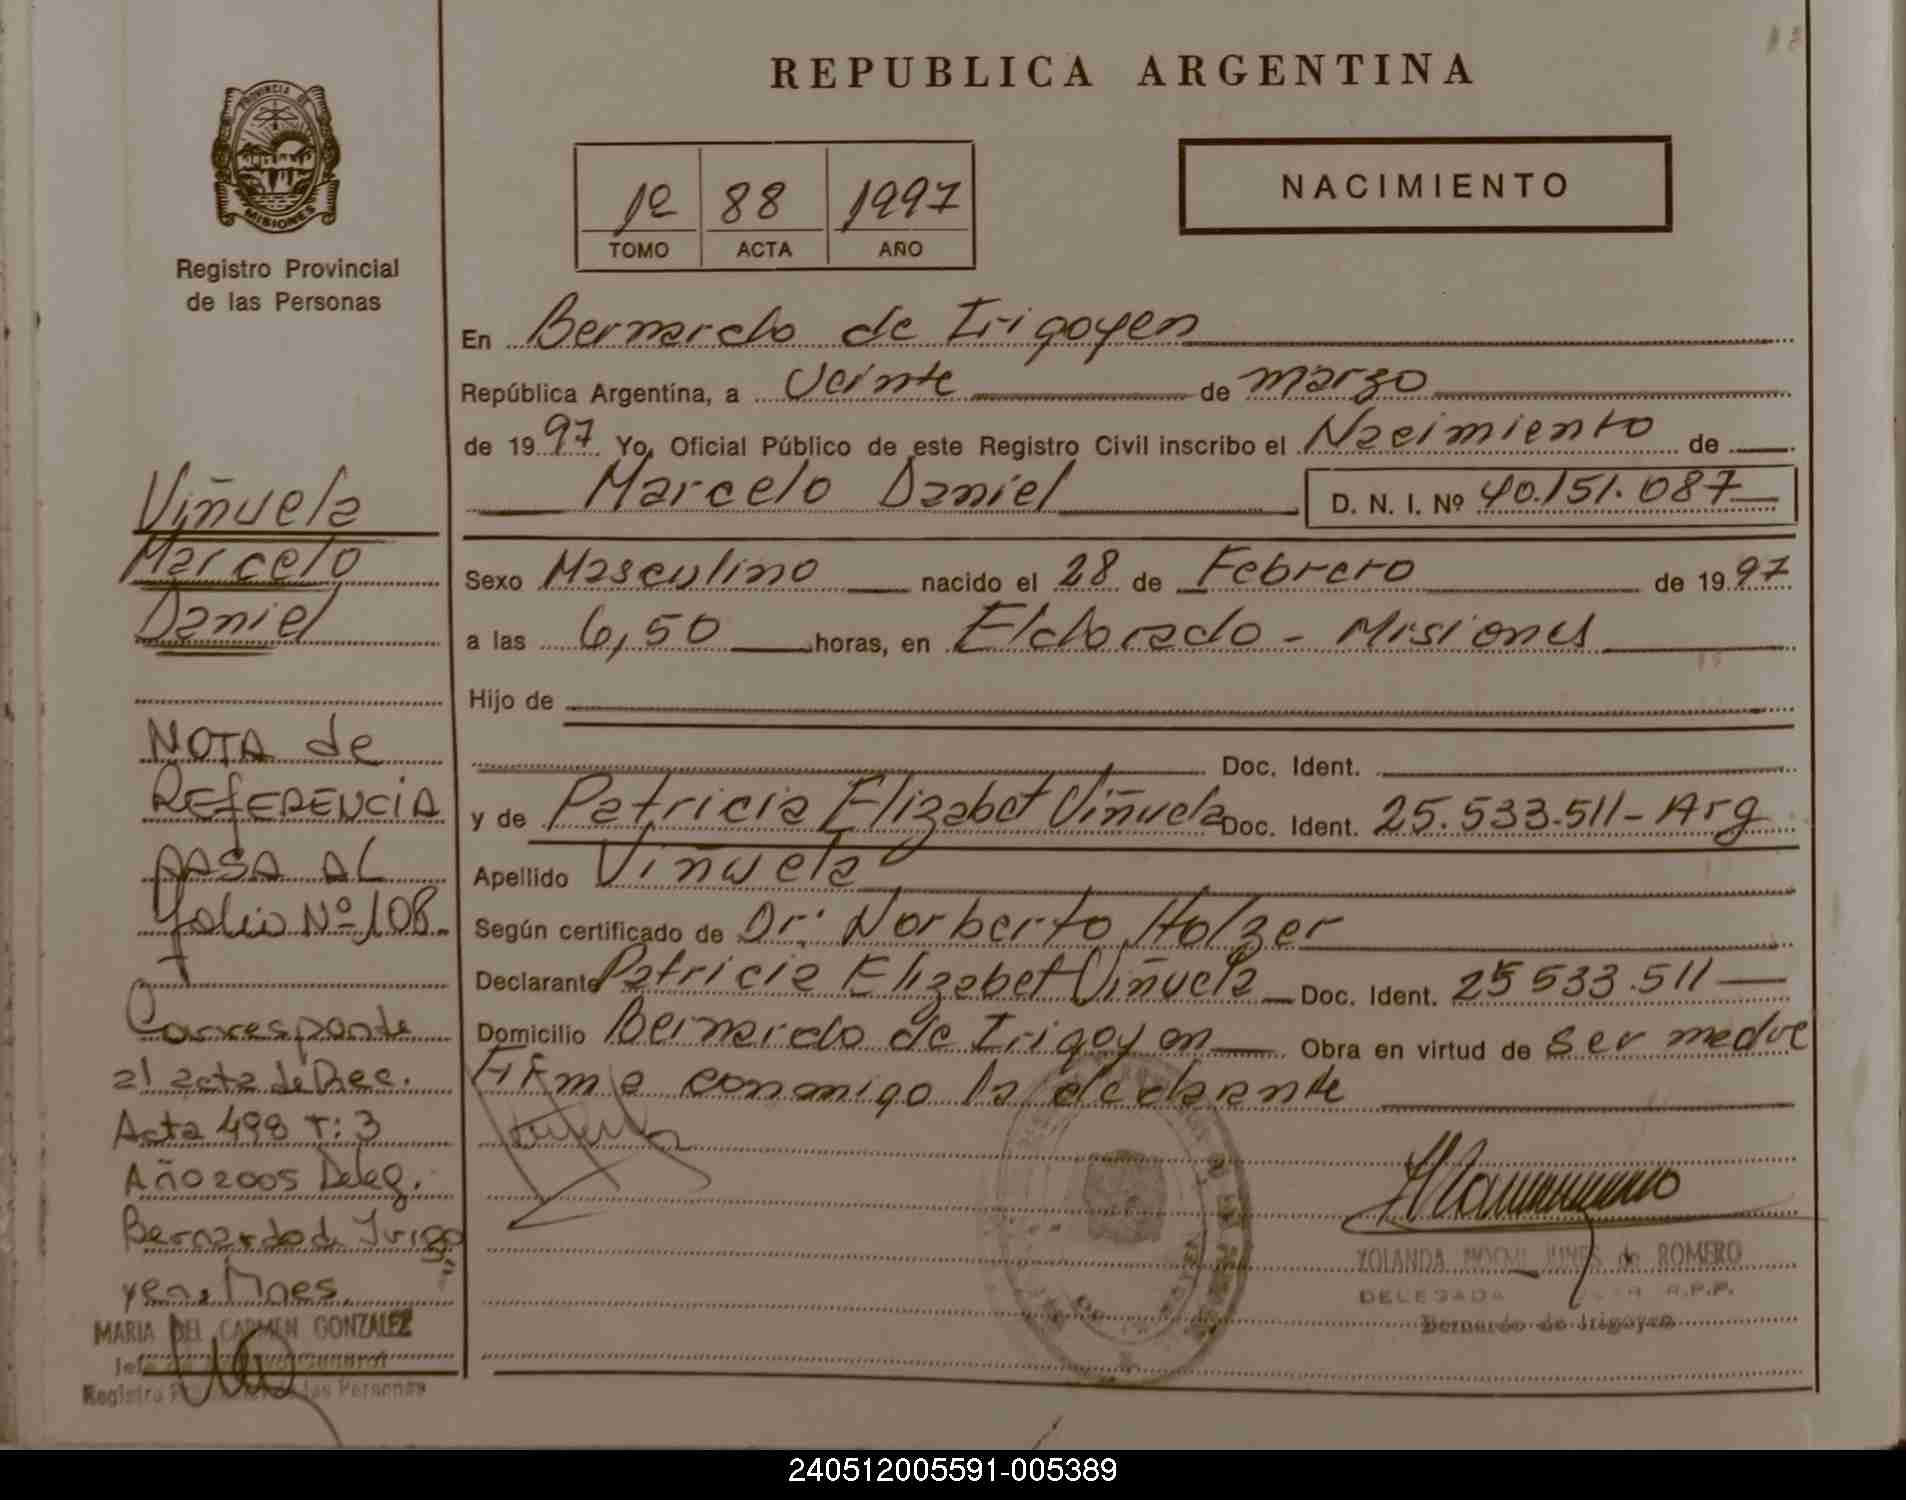 REPUBLICA ARGENTINA
PROVINCIA DE
MISIONES
Registro Provincial
de las Personas
1º 88 1997
TOMO ACTA AÑO
NACIMIENTO
En Bernardo de Irigoyen
República Argentina, a Veinte de marzo
de 1997 Yo, Oficial Público de este Registro Civil inscribo el Nacimiento de
Marcelo Daniel D. N. I. Nº 40.151.087
Sexo Masculino nacido el 28 de Febrero de 1997
a las 6,50 horas, en Eldorado - Misiones
Hijo de
Doc. Ident.
y de Patricia Elizabet Viñuela Doc. Ident. 25.533.511 - Arg
Apellido Viñuela
Según certificado de Dr. Norberto Holzer
Declarante Patricia Elizabet Viñuela Doc. Ident. 25 533.511
Domicilio Bernardo de Irigoyen Obra en virtud de ser madre
Firma conmigo la declarante
YOLANDA NOEMI de ROMERO
DELEGADA R.P.P.
Bernardo de Irigoyen
Viñuela
Marcelo
Daniel
NOTA de
REFERENCIA
PASA AL
folio Nº 108
Corresponde
al acta de Rec.
Acta 498 T: 3
Año 2005 Deleg.
Bernardo de Irigo
yen. Mnes.
MARIA DEL CARMEN GONZALEZ
General
Registro las Personas
240512005591-005389